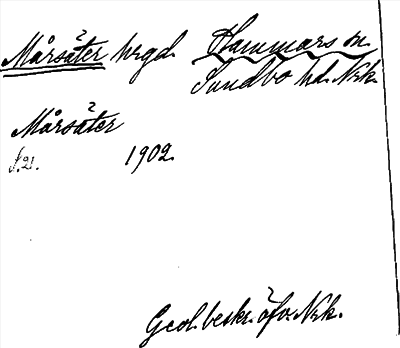 Mårsäter hrgd. Hammars sn
Sundbo hd. Nrk.
Mårsäter
s. 21. 1902.
Geol. beskr. öfv. Nrk.